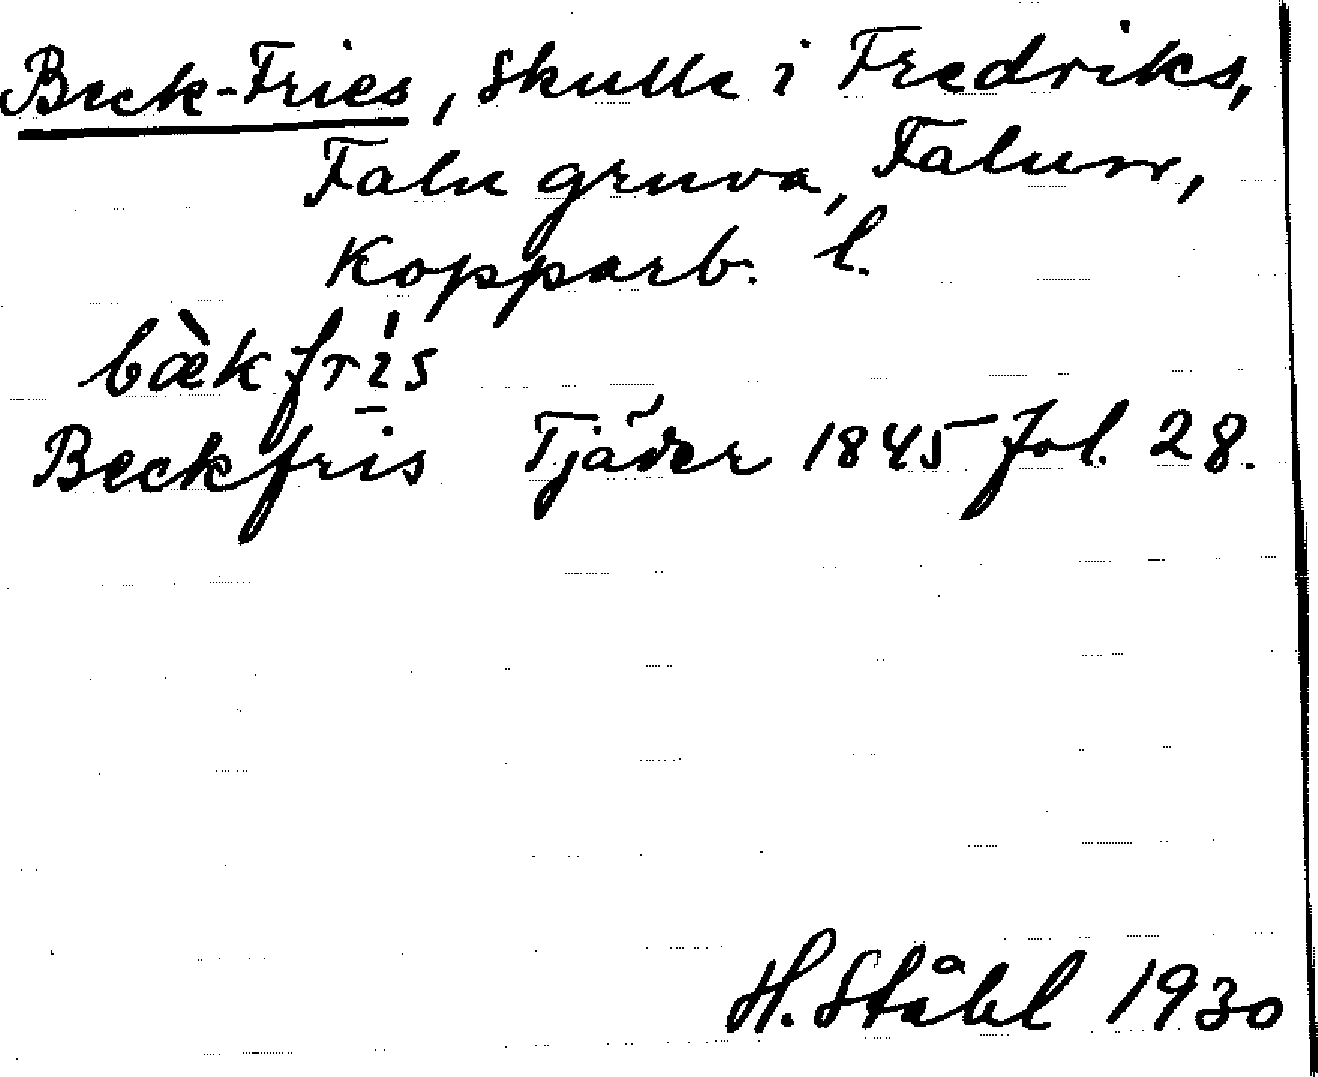 Beck-Fries, Skulle i Fredriks,
Falu gruva, Falun,
Kopparb. l.
bæ̀kfrí̱s
Beckfris Tjäder 1845 fol. 28.
H. Ståhl 1930